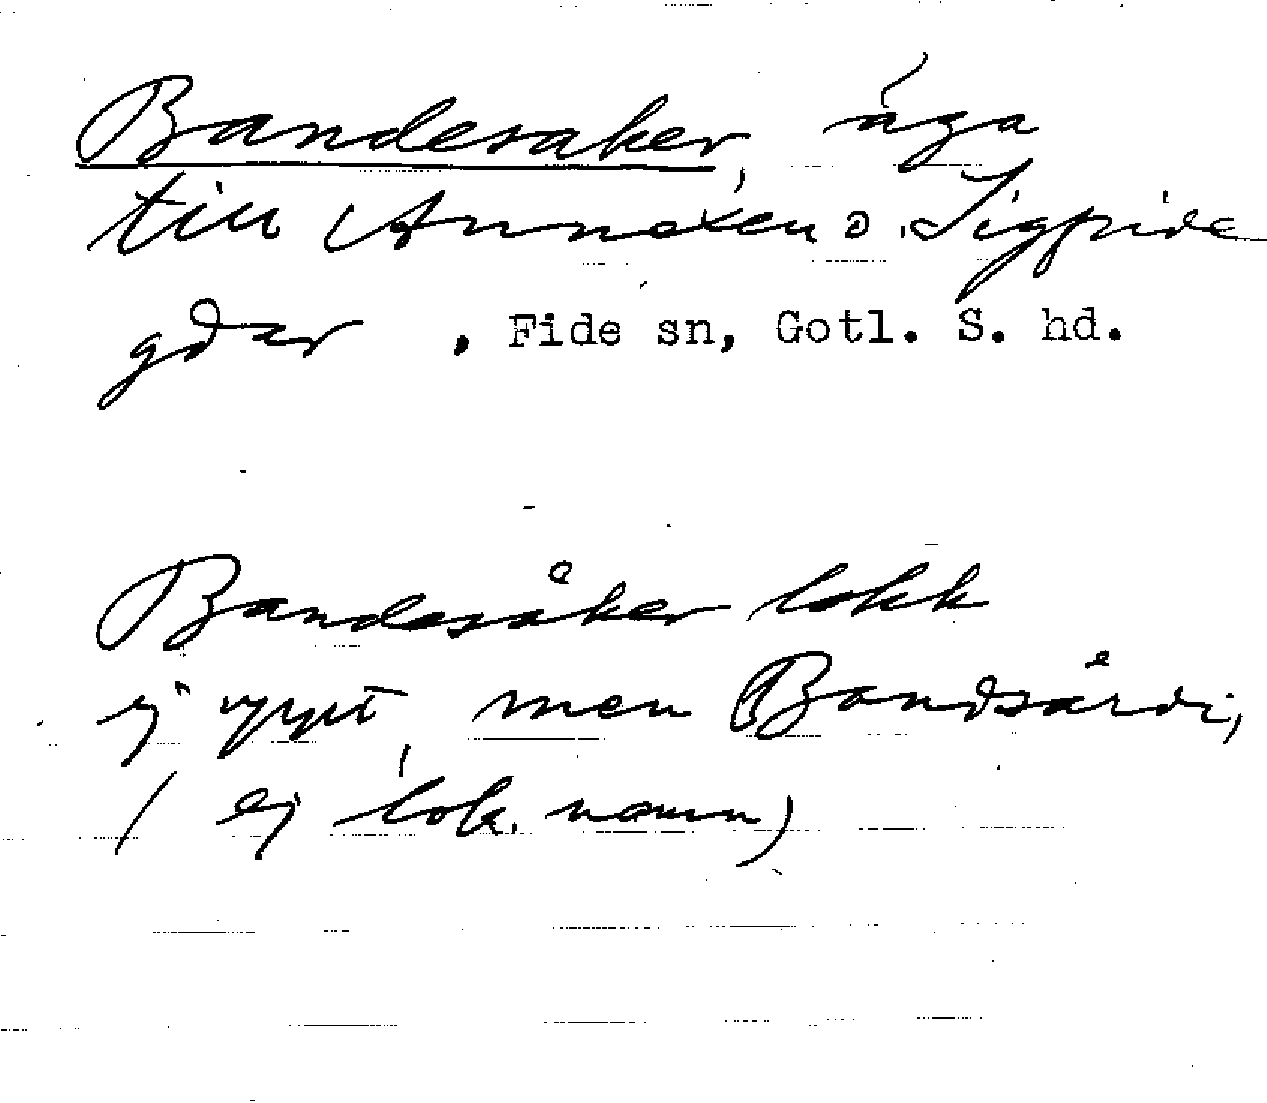 Bandesaker, äga
till Annexen o. Sigfride
gdar , Fide sn, Gotl. S. hd.
Bandesåker lokk
ej uppt, men Bandsårdi,
( ej lok. namn)